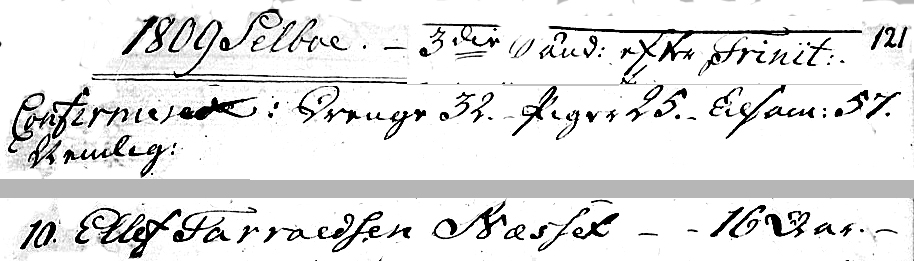 1809 Selboe. - 3die Sönd: efter Trinit:. 121
Confirmerede: Drenge 32. - Piger 25. - Tilsam: 57.
Nemlig:
10. Ellef Tarraldsen Næsset - - 16 Aar. -